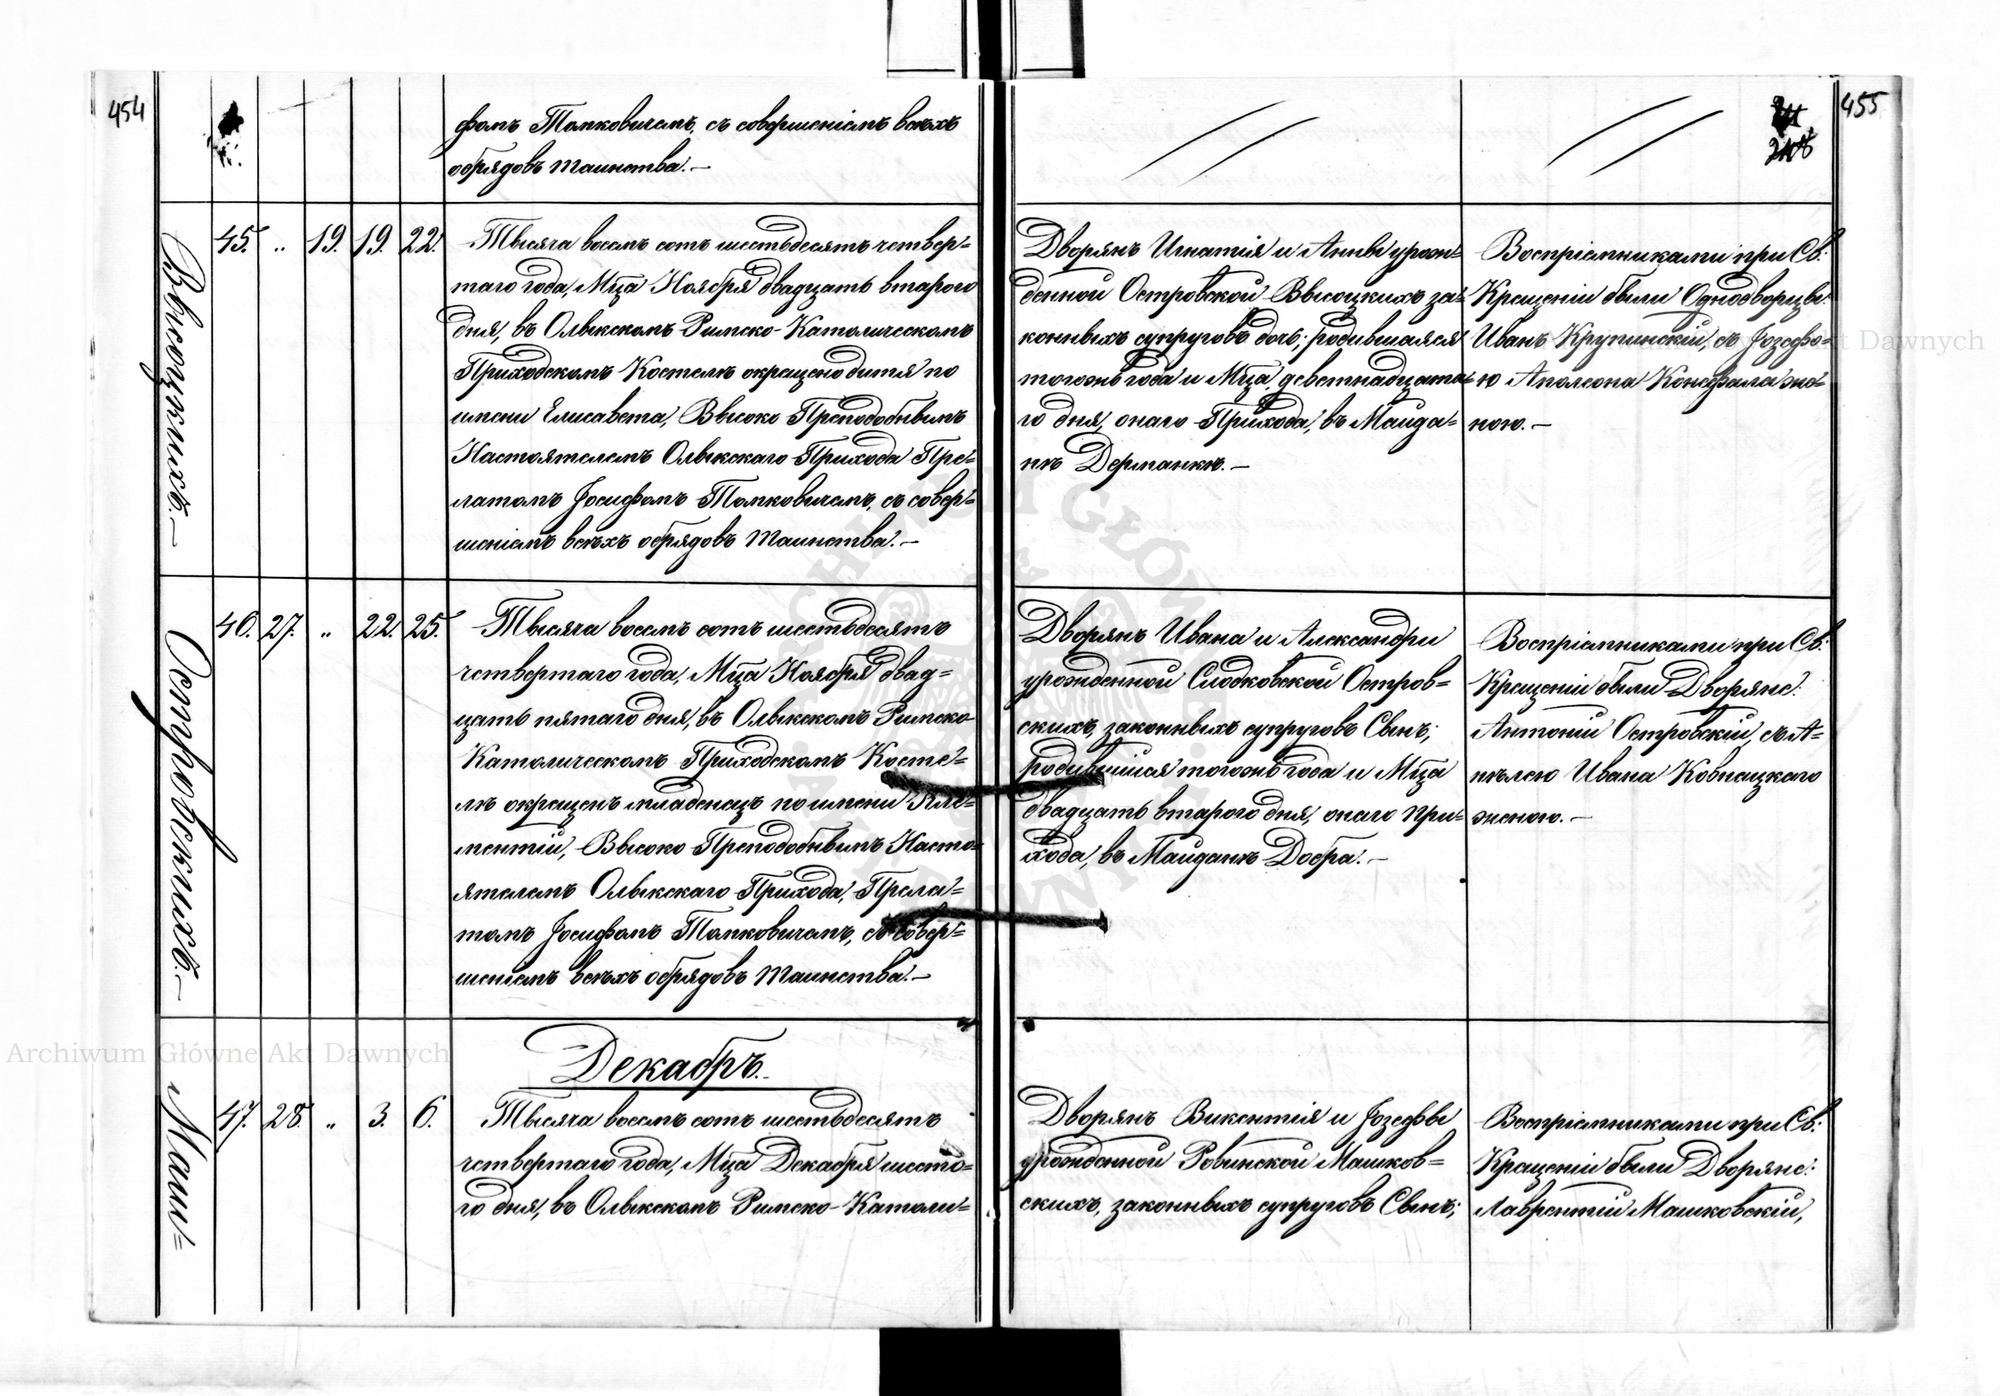 454
фомъ Томковичемъ, съ совершеніемъ всѣхъ
обрядовъ таинства.—
Высоцкихъ.—
45. „ 19. 19. 22.
Тысяча восемь сотъ шестьдесятъ четвер=
таго года, Мца Ноября двадцать втораго
дня, въ Олыкскомъ Римско-Католическомъ
Приходскомъ Костелѣ окрещено дитя по
имени Елисавета, Высоко Преподобнымъ
Настоятелемъ Олыкскаго Прихода Пре=
латомъ Іосифомъ Томковичемъ, съ совер=
шеніемъ всѣхъ обрядовъ таинства.—
Островскихъ.—
46. 27. „ 22. 25.
Тысяча восемь сотъ шестьдесятъ
четвертаго года, Мца Ноября двад=
цать пятаго дня, въ Олыкскомъ Римско-
Католическомъ Приходскомъ Косте=
лѣ окрещенъ младенецъ по имени Кле=
ментій, Высоко Преподобнымъ Насто=
ятелемъ Олыкскаго Прихода, Прела=
томъ Іосифомъ Томковичемъ, съ совер=
шеніемъ всѣхъ обрядовъ таинства.—
Маш=
47. 28. „ 3. 6.
Декабрь.
Тысяча восемь сотъ шестьдесятъ
четвертаго года, Мца Декабря шесто=
го дня, въ Олыкскомъ Римско-Католи=
455
Дворянъ Игнатія и Анны урож=
денной Островской Высоцкихъ за=
конныхъ супруговъ дочь; родившаяся
тогожъ года и Мца девятнадцата=
го дня, онаго Прихода, въ Майда=
нѣ Дерманкѣ.—
Воспріемниками при Св:
Крещеніи были Однодворцы:
Иванъ Крупинскій, съ Іозефо=
ю Аполеона Конефала же=
ною.—
Дворянъ Ивана и Александри
урожденной Слодковской Остров=
скихъ, законныхъ супруговъ Сынъ;
родившійся тогожъ года и Мца
двадцать втораго дня, онаго При=
хода, въ Майданѣ Добра.—
Воспріемниками при Св:
Крещеніи были Дворяне:
Антоній Островскій, съ А=
нѣлею Ивана
женою.—
Дворянъ Викентія и Іозефы
урожденной Ровинской Машков=
скихъ, законныхъ супруговъ Сынъ;
Воспріемниками при Св:
Крещеніи были Дворяне:
Лаврентій Машковскій,
Archiwum Główne Akt Dawnych